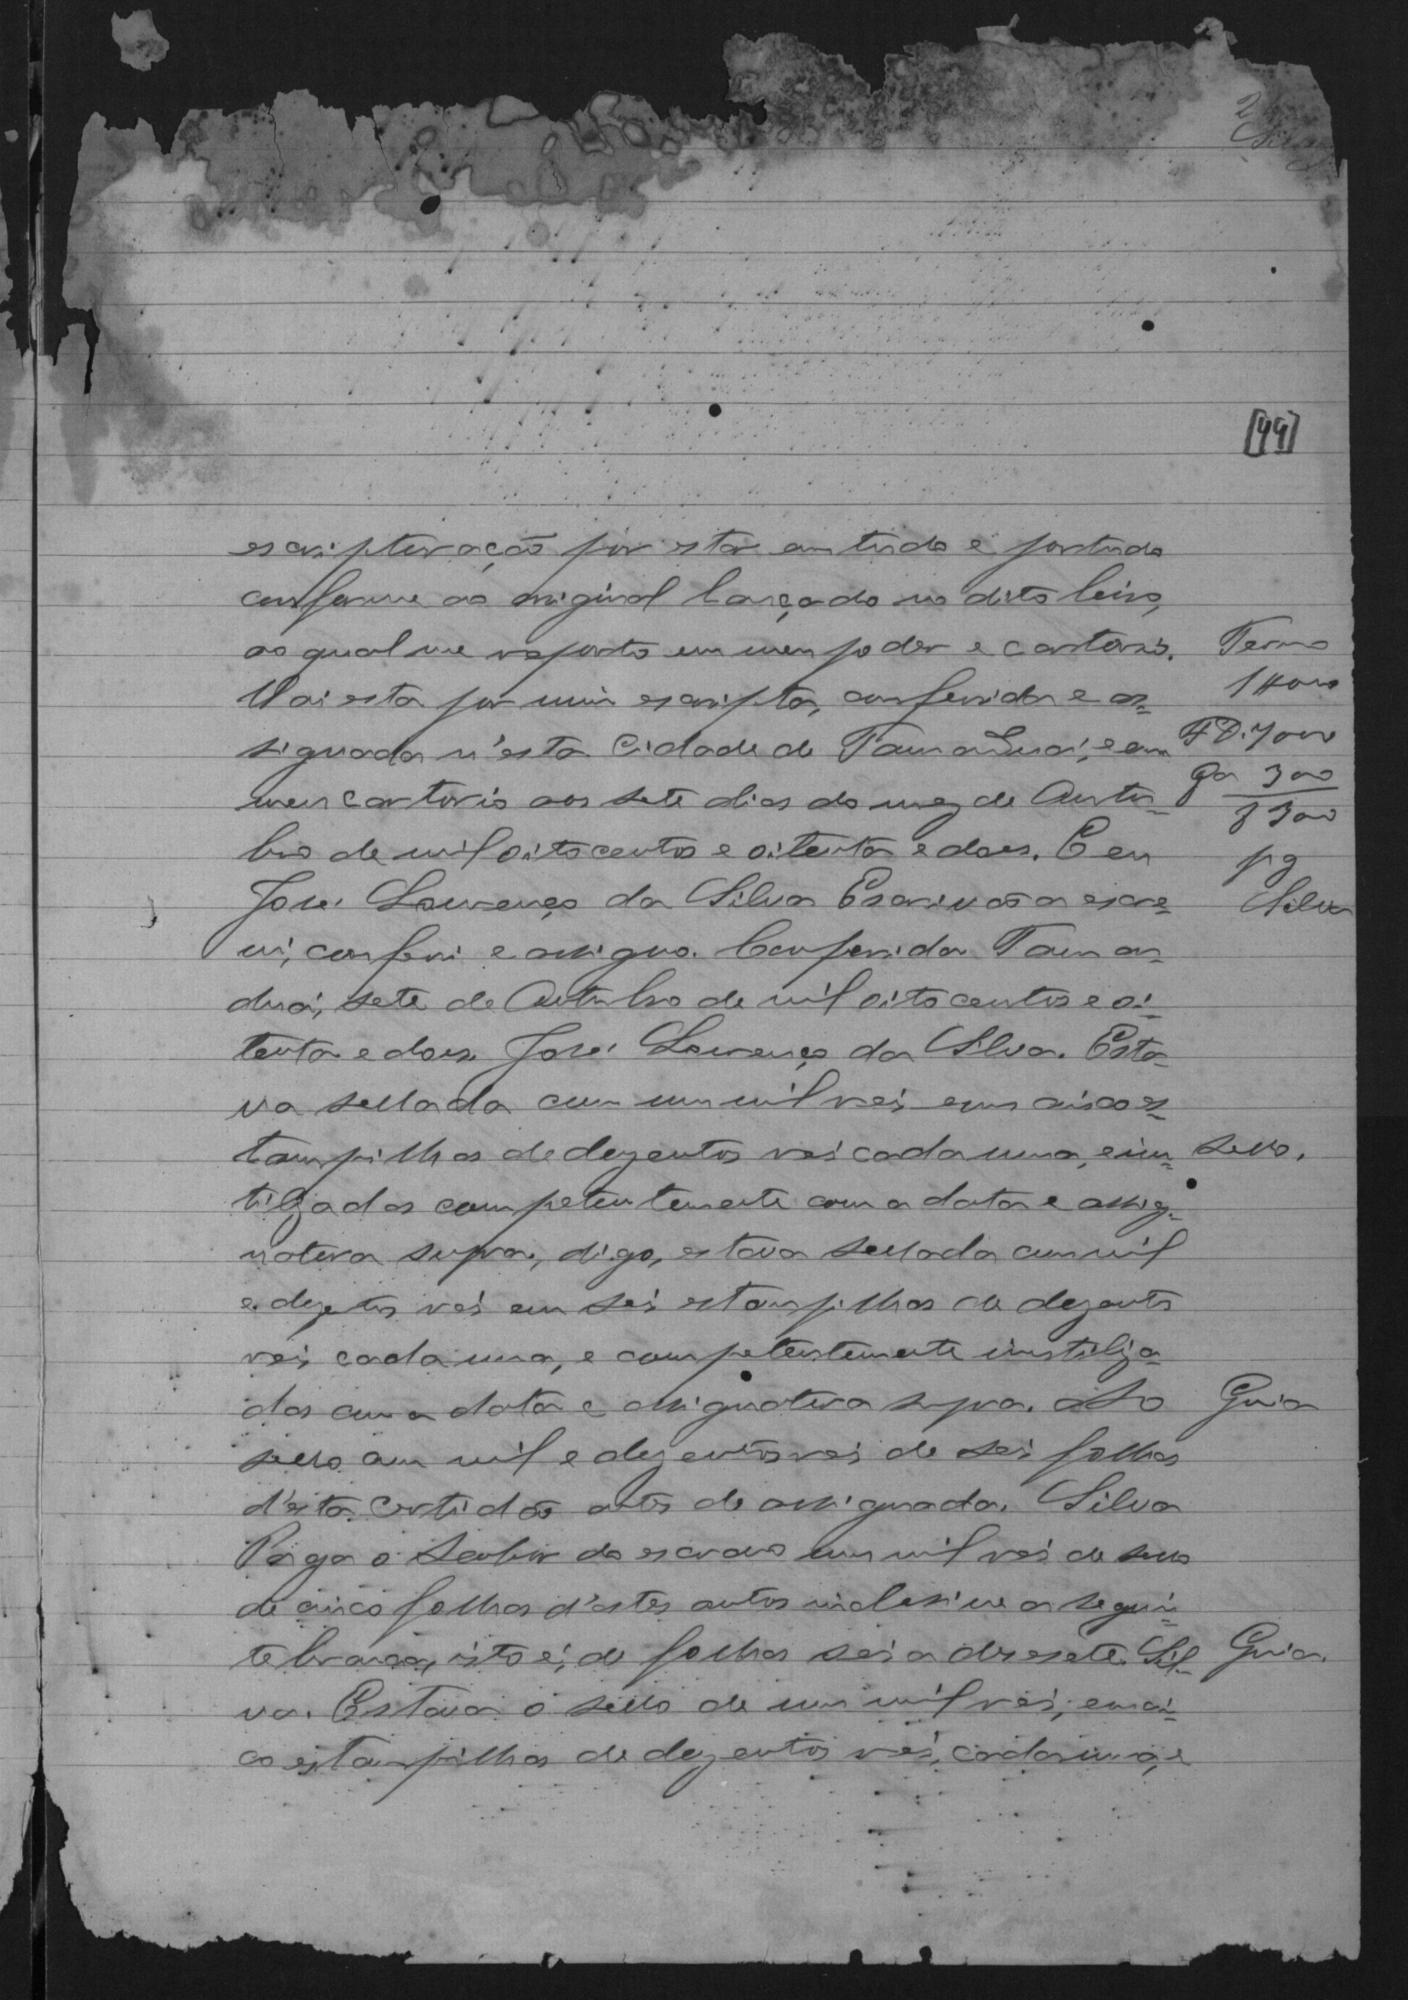 2
Silva
[44]
escripturação por estar em tudo e portudo
conforme ao original lançado no dito livro,
ao qual me reporto em meu poder e cartorio.
Vai esta por mim escripta, conferida e as-
signada n'esta Cidade de Tamanduá, e em
meu cartorio aos sete dias do mez de Outu-
bro de mil oitocentos e oitenta e dous. E eu
José Lourenço da Silva Escrivão a escre-
vi, conferi e assigno. Conferida Taman-
duá, sete de Outubro de mil oitocentos e oi-
tenta e dous. José Lourenço da Silva. Esta-
va sellada com um mil reis em cinco es-
tampilhas de dezentos reis cada uma, e inu-
tilzadas competentemente com a data e assig-
natura supra, digo, estava sellada com mil
e dezetos reis em seis estampilhas de dezentos
reis cada uma, e competentemente inutiliza-
das com a data e assignatura supra.
sello com mil e dezentos reis de seis folhas
d'esta certidão antes de assignada. Silva
Paga o Senhor do escravo um mil reis de sello
de cinco folhas d'estes autos inclusive a seguin-
te branca, isto é, de folhas seis a desesete. Sil-
va. Estava o sello de um mil reis, em cin-
co estampilhas de dezentos reis, cada uma, e
Termo
1$000
3$300
pg
Silva
Sello.
Guia
Guia.